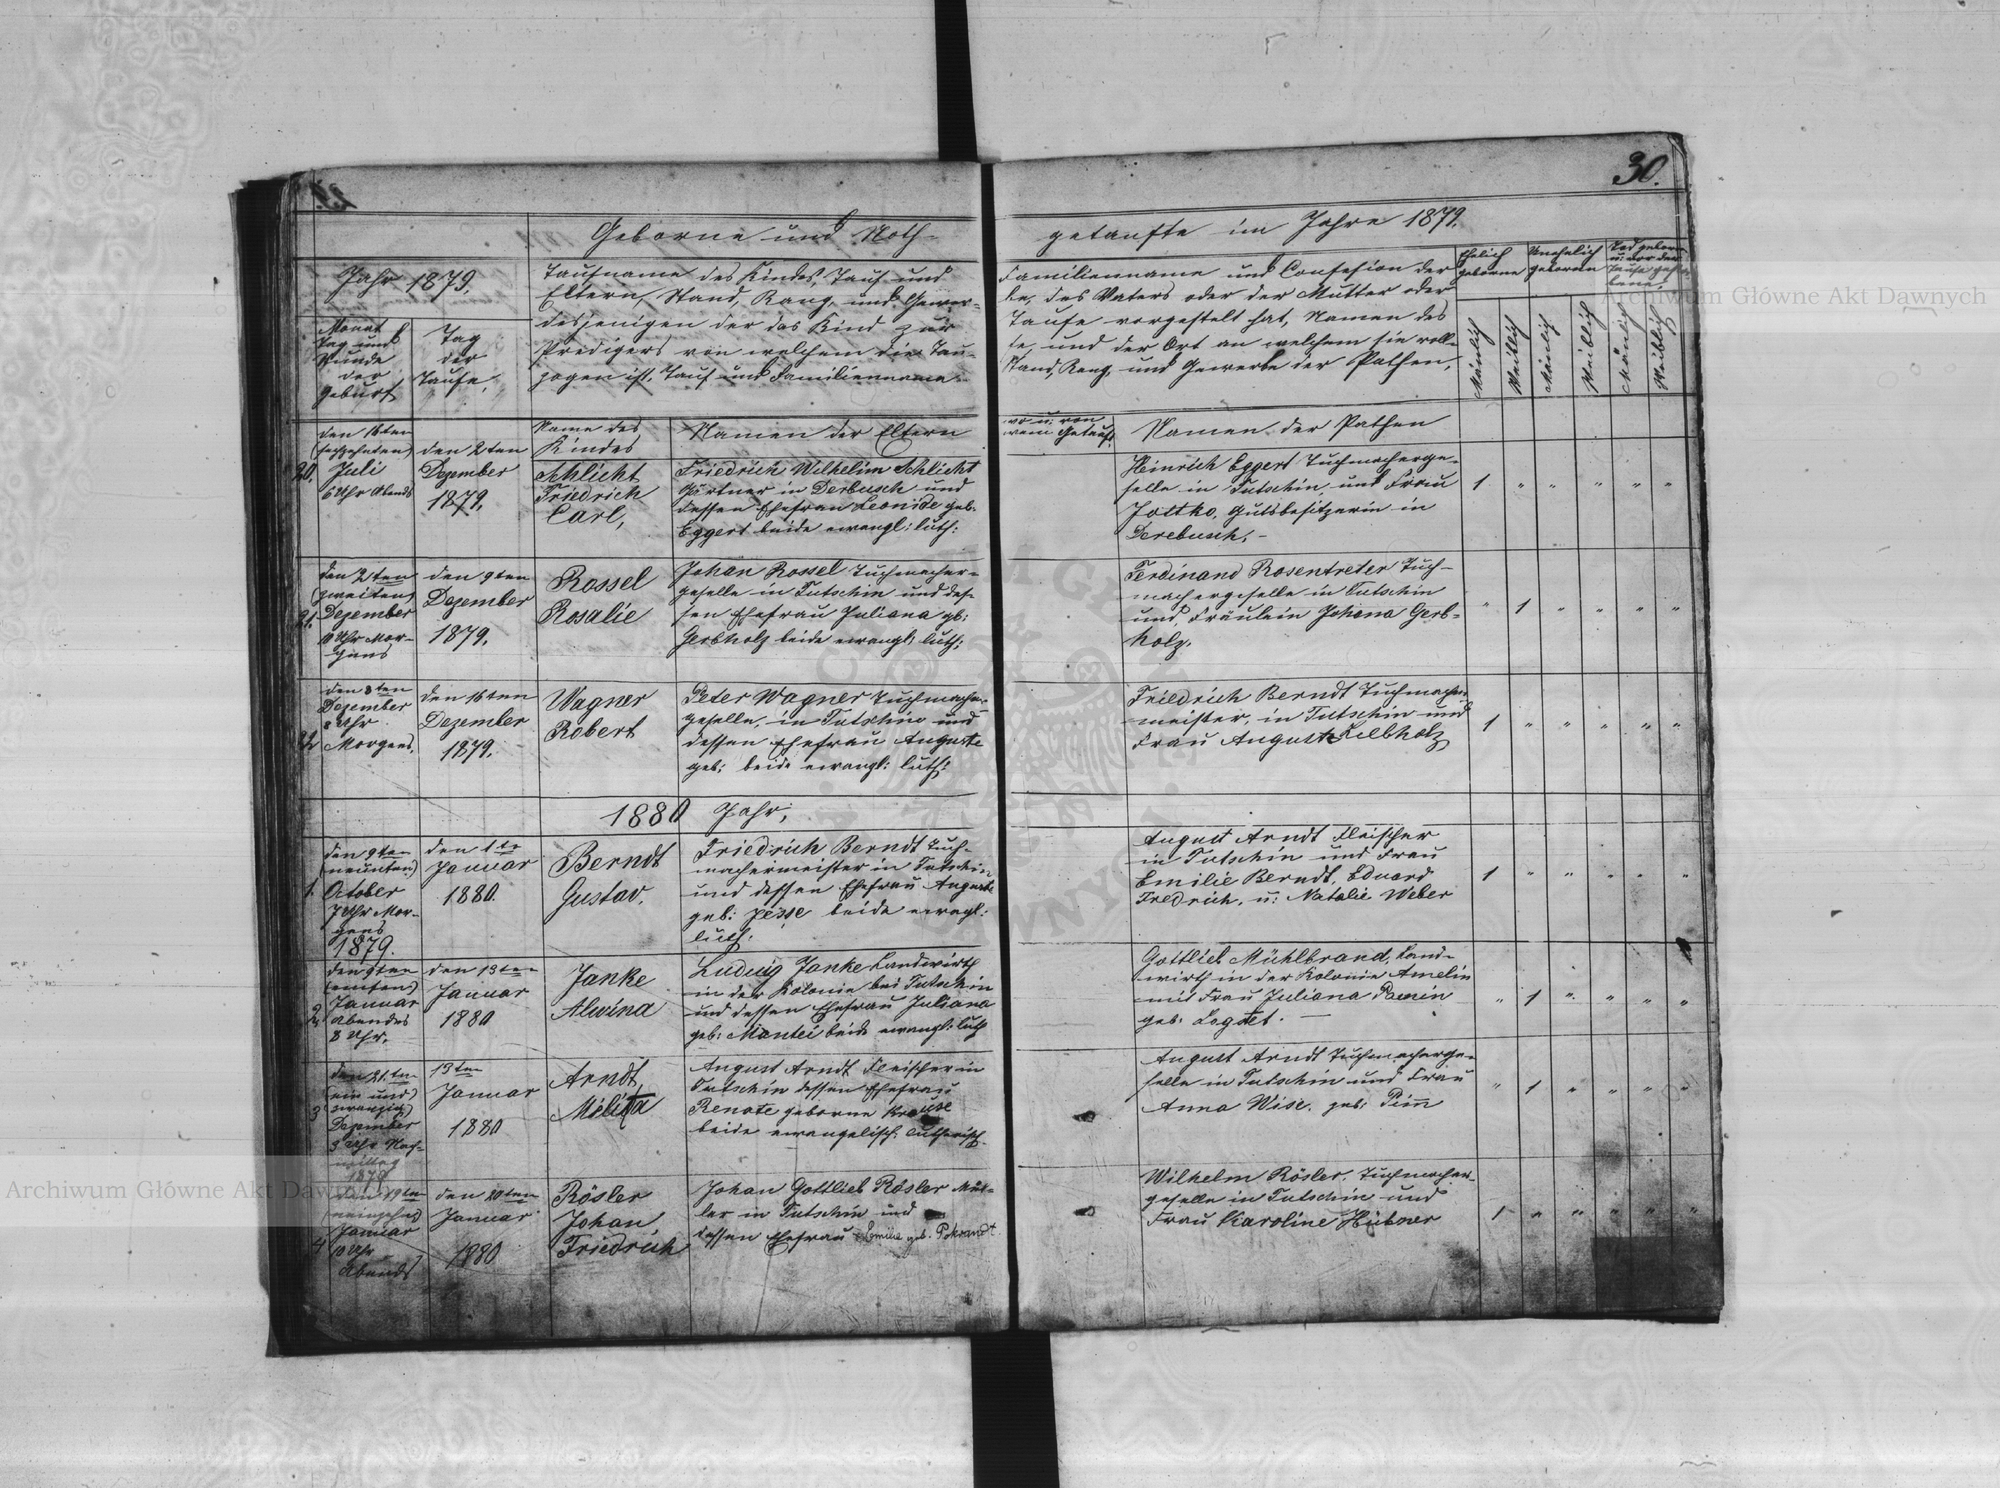 30.
Geborne und Noth-
getaufte im Jahre 1879.
Jahr 1879.
Monat
Tag und
Stunde
der
Geburt
Tag
der
Taufe.
Taufname des Kindes, Tauf und
Eltern, Stand, Rang, und Gewer-
desjenigen der das Kind zur
Predigers von welchem die Tau-
zogen ist, Tauf und Familienname
Familienname und Confession der
be, des Vaters oder der Mutter oder
Taufe vorgestelt hat, Namen des
fe, und der Ort an welchem sie voll-
Stand, Rang, und Gewerbe der Pathen,
Ehelich
geborne
Unehelich
geboren
Tod geboren
u. vor der
Taufe gestor-
bene.
Mänlich
Weiblich
Mänlich
Weiblich
Mänlich
Weiblich
Name des
Kindes
Namen der Eltern
wo u. von
wem Getauft
Namen der Pathen
20.
den 16ten
(sechzehnten)
Juli
6 Uhr Abends
den 2ten
Dezember
1879.
Schlicht
Friedrich
Carl,
Friedrich Wilhelm Schlicht
Gärtner in Derbusch und
dessen Ehefrau Leonide geb.
Eggert beide evangl: luth:
Heinrich Eggert Tuchmacherge-
selle in Tutschin, und Frau
Jottko, Gutsbesitzerin in
Derebusch. -
1 " " " " "
21.
den 2ten
(zweiten)
Dezember
10 Uhr Mor-
gens
den 9ten
Dezember
1879.
Rossel
Rosalie
Johan Rossel Tuchmacher-
geselle in Tutschin und des-
sen Ehefrau Juliana gb:
Gerbholz beide evangl: luth:
Ferdinand Rosentreter Tuch-
machergeselle in Tutschin
und, Fräulein Johana Gerb-
holz.
" 1 " " " "
22
den 8ten
Dezember
8 Uhr
Morgens.
den 16ten
Dezember
1879.
Wagner
Robert
Peter Wagner Tuchmacher-
geselle, in Tutschin und
dessen Ehefrau Auguste
geb: beide evangl: luth:
Friedrich Berndt Tuchmacher-
meister, in Tutschin und
Frau August Felbholz
1 " " " " "
1880 Jahr,
1.
den 9ten
(neunten)
October
7 Uhr Mor-
gens
1879.
den 1te
Januar
1880.
Berndt
Gustav.
Friedrich Berndt Tuch-
machermeister in Tutschin
und dessen Ehefrau Auguste
geb: beide evangl:
luth:
August Arndt Fleischer
in Tutschin und Frau
Emilie Berndt, Eduard
Fredrich, u: Natalie Weber
1 " " " " "
2.
den 9ten
Januar
Abendes
8 Uhr.
den 13ten
Januar
1880
Janke
Alwina
Ludwig Janke Landwirth
in der Kolonie bei Tutschin
und dessen Ehefrau Juliana
geb: Mantei beide evangl: luth
Gottlieb Mühlbrand, Land-
wirth in der Kolonie Amelin
mit Frau Juliana
geb:
" 1 " " " "
3
den 21.ten
(ein und
zwanzig)
Dezember
3 Uhr Nach-
mittag
1879
13ten
Januar
1880
Arndt,
Melitta
August Arndt Fleischer in
Tutschin dessen Ehefrau
Renate geborne Krause
beide evangelisch: lutherisch.
August Arndt Tuchmacherge-
selle in Tutschin und Frau
Anna Wise. geb:
" 1 " " " "
4
den 19ten
(neinzehn)
Januar
10 Uhr
Abends
den 20ten
Januar
1880
Rösler
Johan
Friedrich
Johan Gottlieb Rösler Mül-
ler in Tutschin und
dessen Ehefrau Emilie geb. Pokrandt.
Wilhelm Rösler, Tuchmacher-
geselle in Tutschin und
Frau Karoline Hübner
1 " " " " "
Archiwum Główne Akt Dawnych
Archiwum Główne Akt Dawnych